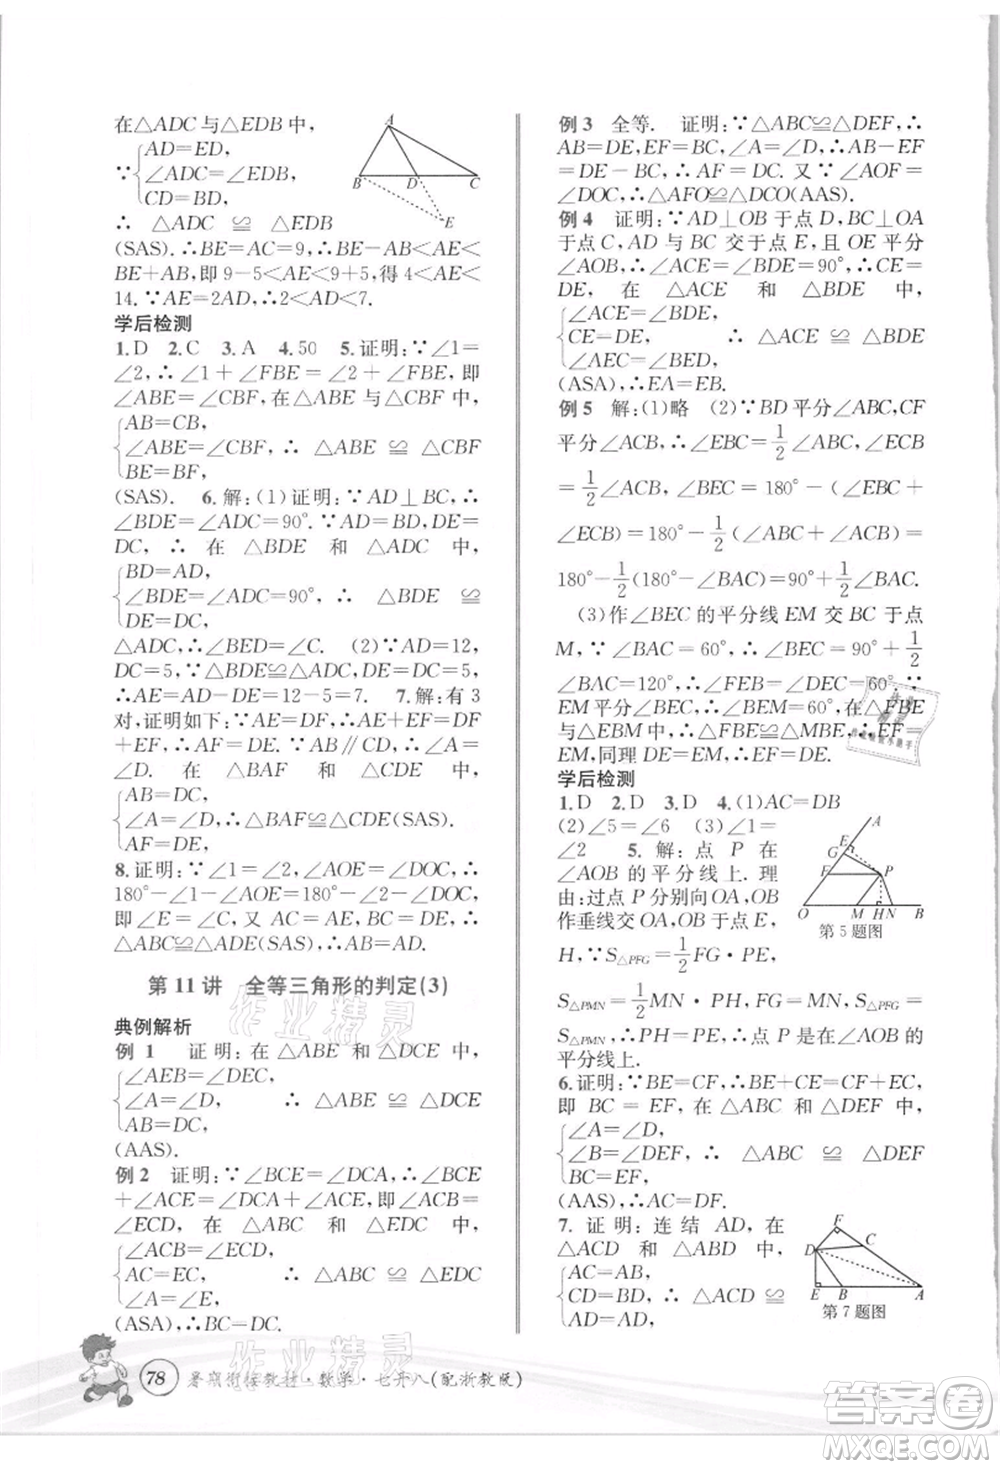 在△ADC与△EDB中,
AD=ED,
∵ ∠ADC=∠EDB,
CD=BD,
∴ △ADC ≌ △EDB
(SAS). ∴BE=AC=9,∵BE-AB<AE<
BE+AB,即9-5<AE<9+5,得4<AE<
14.∵AE=2AD,∴2<AD<7.
A
B D C
E
学后检测
1.D 2.C 3.A 4.50 5.证明:∵∠1=
∠2,∴∠1+∠FBE=∠2+∠FBE,即
∠ABE=∠CBF,在△ABE与△CBF中,
AB=CB,
∠ABE=∠CBF, ∴ △ABE ≌ △CBF
BE=BF,
(SAS). 6.解:(1)证明:∵AD⊥BC,∴
∠BDE=∠ADC=90°.∵AD=BD,DE=
DC, ∴ 在 △BDE 和 △ADC 中,
BD=AD,
∠BDE=∠ADC=90°, ∴ △BDE ≌
DE=DC,
△ADC,∴∠BED=∠C. (2)∵AD=12,
DC=5,∵△BDE≌△ADC,∴DE=DC=5,
∴AE=AD-DE=12-5=7. 7.解:有3
对,证明如下:∵△ABF≌△DCE,∴∠BAF
=∠CDE,AF=DE,∵AB∥CD,∴∠BAC
=∠DCA. 在 △BAF 和 △DCE 中,
AB=DC,
∠BAF=∠DCE,∴△BAF≌△DCE(SAS).
AF=DE,
8.证明:∵∠1=∠2,∠AOE=∠DOC,∴
180°-∠1-∠AOE=180°-∠2-∠DOC,
即∠E=∠C,又 AC=AE,DE=BC,∴
△ABC≌△ADE(SAS),∴AB=AD.
第11讲 全等三角形的判定(3)
典例解析
例1 证明:在△ABE和△DCE中,
∠AEB=∠DEC,
∠A=∠D, ∴ △ABE ≌ △DCE
AB=DC,
(AAS).
例2 证明:∵∠BCE=∠DCA,∴∠BCE
+∠ACE=∠DCA+∠ACE,即∠ACB=
∠ECD, 在 △ABC 和 △EDC 中,
∠ACB=∠ECD,
AC=EC, ∴ △ABC ≌ △EDC
∠A=∠E,
(ASA),∴BC=DC.
例3 全等. 证明:∵△ABC≌△DEF,∴
AB=DE,BC=EF,∠A=∠D,∴AB-BF
=DE-BC,∴AF=DC. 又∵∠AOF=
∠DOC,∴△AFO≌△DCO(AAS).
例4 证明:∵AD⊥OB于点D,BC⊥OA
于点C,AD与BC交于点E,且OE平分
∠AOB,∴∠ACE=∠BDE=90°,∴CE=
DE, 在 △ACE 和 △BDE 中,
∠ACE=∠BDE,
CE=DE, ∴ △ACE ≌ △BDE
∠AEC=∠BED,
(ASA),∴EA=EB.
例5 解:(1)略 (2)∵BD平分∠ABC,CF
平分∠ACB,∴∠EBC=1/2∠ABC,∠ECB
=1/2∠ACB,∴∠BEC=180°-(∠EBC+
∠ECB)=180°-1/2(∠ABC+∠ACB)=
180°-1/2(180°-∠BAC)=90°+1/2∠BAC.
(3)作∠BEC的平分线EM交BC于点
M,∵∠BAC=60°,∴∠BEC=90°+1/2
∠BAC=120°,∴∠FEB=∠DEC=60°.∵
EM平分∠BEC,∴∠BEM=60°,在△FBE
与△EBM中,∴△FBE≌△MBE,∴EF=
EM,同理DE=EM,∴EF=DE.
学后检测
1.D 2.D 3.D 4.(1)AC=DB
(2)∠5=∠6 (3)∠1=
∠2 5.解:点P在
∠AOB的平分线上. 理
由:过点P分别向OA,OB
作垂线交OA,OB于点E,
H,∵S△PFG=1/2FG·PE,
S△PMN=1/2MN·PH,FG=MN,S△PFG=
S△PMN,∴PH=PE,∴点P是在∠AOB的
平分线上.
A
E
G
F P
O M H N B
第5题图
6.证明:∵BE=CF,∴BE+EC=CF+EC,
即BC=EF,在△ABC和△DEF中,
∠A=∠D,
∠B=∠DEF, ∴ △ABC ≌ △DEF
BC=EF,
(AAS),∴AC=DF.
7. 证明:连结AD,在
△ACD 和 △ABD 中,
AC=AB,
CD=BD,∴
AD=AD,
F
C
D
E B A
第7题图
78 暑期衔接教材·数学·七升八(配浙教版)
作业精灵
作业精灵
答案圈
MXQE.COM